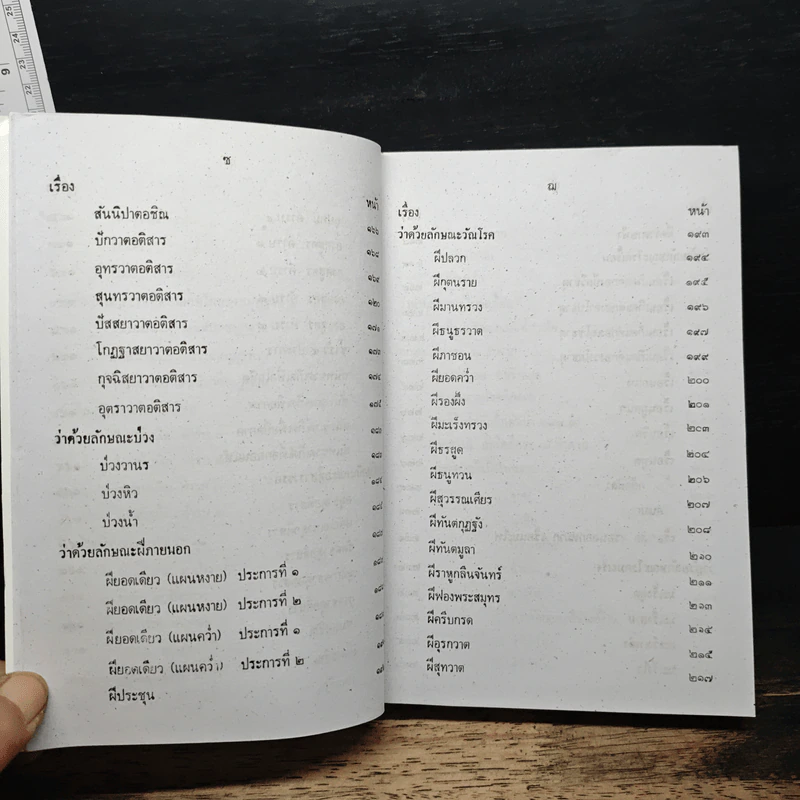 ซ
เรื่อง หน้า
สันนิปาตอชิณ ๑๖๖
ปักวาตอติสาร ๑๖๘
อุทรวาตอติสาร ๑๖๙
สุนทรวาตอติสาร
ปัสสยาวาตอติสาร ๑๗๑
โกฏฐาสยาวาตอติสาร
กุจฉิสยาวาตอติสาร ๑๗๔
อุตราวาตอติสาร ๑๗๙
ว่าด้วยลักษณะป่วง
ป่วงวานร
ป่วงหิว
ป่วงน้ำ
ว่าด้วยลักษณะฝีภายนอก
ฝียอดเดียว (แผนหงาย) ประการที่ ๑
ฝียอดเดียว (แผนหงาย) ประการที่ ๒
ฝียอดเดียว (แผนคว่ำ) ประการที่ ๑
ฝียอดเดียว (แผนคว่ำ) ประการที่ ๒
ฝีประชุน
ฌ
เรื่อง หน้า
ว่าด้วยลักษณะวัณโรค ๑๙๓
ฝีปลวก ๑๙๔
ฝีกุตนราย ๑๙๕
ฝีมานทรวง ๑๙๖
ฝีธนูธรวาต ๑๙๗
ฝีภาชอน ๑๙๙
ฝียอดคว่ำ ๒๐๐
ฝีรองผึ้ง ๒๐๑
ฝีมะเร็งทรวง ๒๐๓
ฝีธรสูด ๒๐๔
ฝีธนูทวน ๒๐๖
ฝีสุวรรณเศียร ๒๐๗
ฝีทันตกุฏฐัง ๒๐๘
ฝีทันตมูลา ๒๑๐
ฝีราหูกลืนจันทร์ ๒๑๑
ฝีฟองพระสมุทร ๒๑๓
ฝีครีบกรด ๒๑๔
ฝีอุรกวาต ๒๑๕
ฝีสุทวาต ๒๑๗